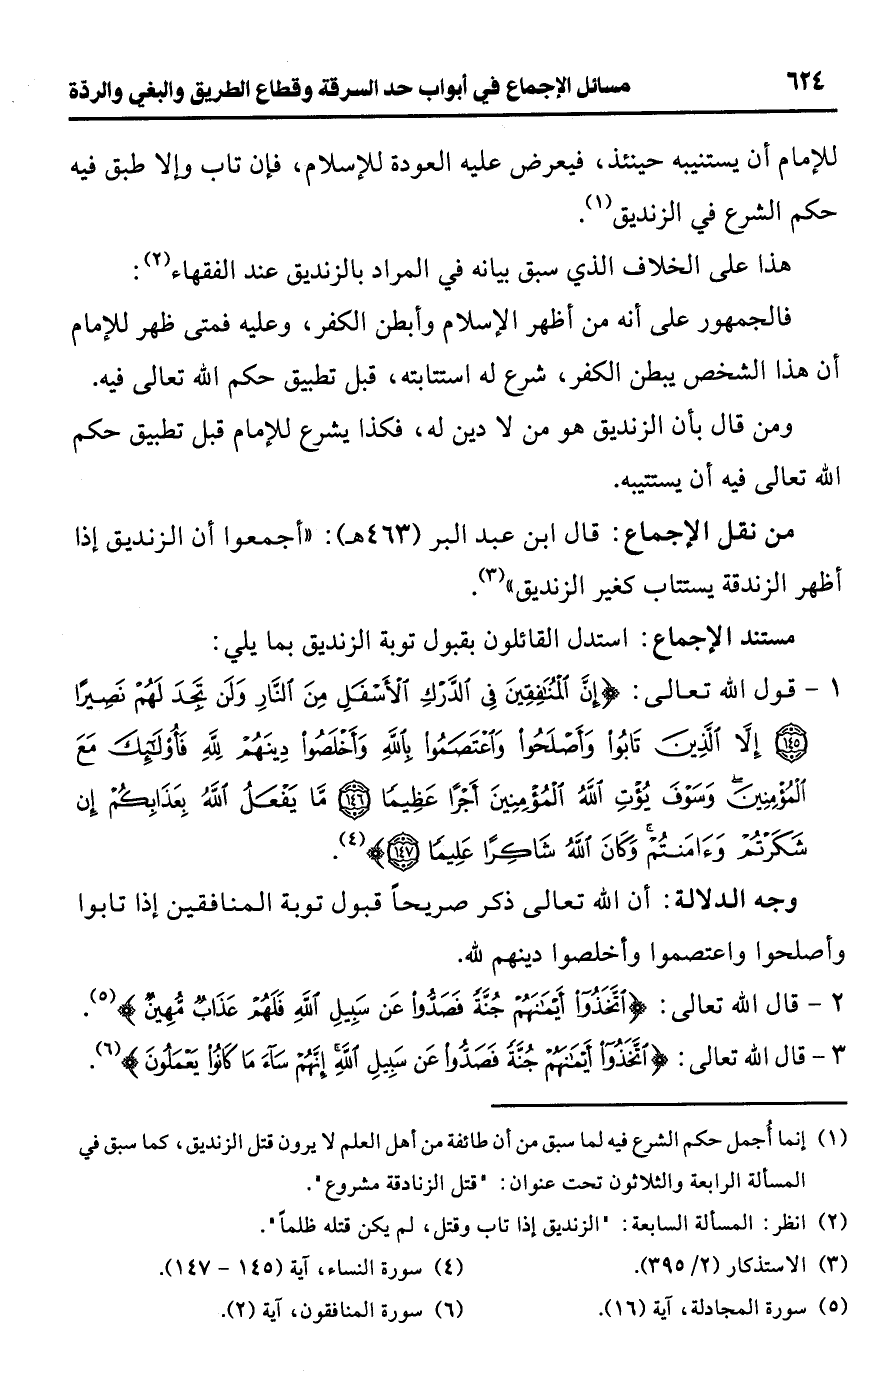 ٦٢٤
مسائل الإجماع في أبواب حد السرقة وقطاع الطريق والبغي والردّة
للإمام أن يستنيبه حينئذ، فيعرض عليه العودة للإسلام، فإن تاب وإلا طبق فيه
حكم الشرع في الزنديق(١).
هذا على الخلاف الذي سبق بيانه في المراد بالزنديق عند الفقهاء(٢):
فالجمهور على أنه من أظهر الإسلام وأبطن الكفر، وعليه فمتى ظهر للإمام
أن هذا الشخص يبطن الكفر، شرع له استتابته، قبل تطبيق حكم الله تعالى فيه.
ومن قال بأن الزنديق هو من لا دين له، فكذا يشرع للإمام قبل تطبيق حكم
الله تعالى فيه أن يستتيبه.
من نقل الإجماع: قال ابن عبد البر (٤٦٣هـ): «أجمعوا أن الزنديق إذا
أظهر الزندقة يستتاب كغير الزنديق»(٣).
مستند الإجماع: استدل القائلون بقبول توبة الزنديق بما يلي:
١ - قول الله تعالى: ﴿إِنَّ ٱلْمُنَٰفِقِينَ فِى ٱلدَّرْكِ ٱلْأَسْفَلِ مِنَ ٱلنَّارِ وَلَن تَجِدَ لَهُمْ نَصِيرًا
(١٤٥) إِلَّا ٱلَّذِينَ تَابُوا۟ وَأَصْلَحُوا۟ وَٱعْتَصَمُوا۟ بِٱللَّهِ وَأَخْلَصُوا۟ دِينَهُمْ لِلَّهِ فَأُو۟لَٰٓئِكَ مَعَ
ٱلْمُؤْمِنِينَ ۖ وَسَوْفَ يُؤْتِ ٱللَّهُ ٱلْمُؤْمِنِينَ أَجْرًا عَظِيمًا (١٤٦) مَّا يَفْعَلُ ٱللَّهُ بِعَذَابِكُمْ إِن
شَكَرْتُمْ وَءَامَنتُمْ ۚ وَكَانَ ٱللَّهُ شَاكِرًا عَلِيمًا (١٤٧)﴾(٤).
وجه الدلالة: أن الله تعالى ذكر صريحاً قبول توبة المنافقين إذا تابوا
وأصلحوا واعتصموا وأخلصوا دينهم لله.
٢ - قال الله تعالى: ﴿ٱتَّخَذُوٓا۟ أَيْمَٰنَهُمْ جُنَّةً فَصَدُّوا۟ عَن سَبِيلِ ٱللَّهِ فَلَهُمْ عَذَابٌ مُّهِينٌ﴾(٥).
٣ - قال الله تعالى: ﴿ٱتَّخَذُوٓا۟ أَيْمَٰنَهُمْ جُنَّةً فَصَدُّوا۟ عَن سَبِيلِ ٱللَّهِ ۚ إِنَّهُمْ سَآءَ مَا كَانُوا۟ يَعْمَلُونَ﴾(٦).
(١) إنما أُجمل حكم الشرع فيه لما سبق من أن طائفة من أهل العلم لا يرون قتل الزنديق، كما سبق في
المسألة الرابعة والثلاثون تحت عنوان: "قتل الزنادقة مشروع".
(٢) انظر: المسألة السابعة: "الزنديق إذا تاب وقتل، لم يكن قتله ظلماً".
(٣) الاستذكار (٢/ ٣٩٥). (٤) سورة النساء، آية (١٤٥ - ١٤٧).
(٥) سورة المجادلة، آية (١٦). (٦) سورة المنافقون، آية (٢).